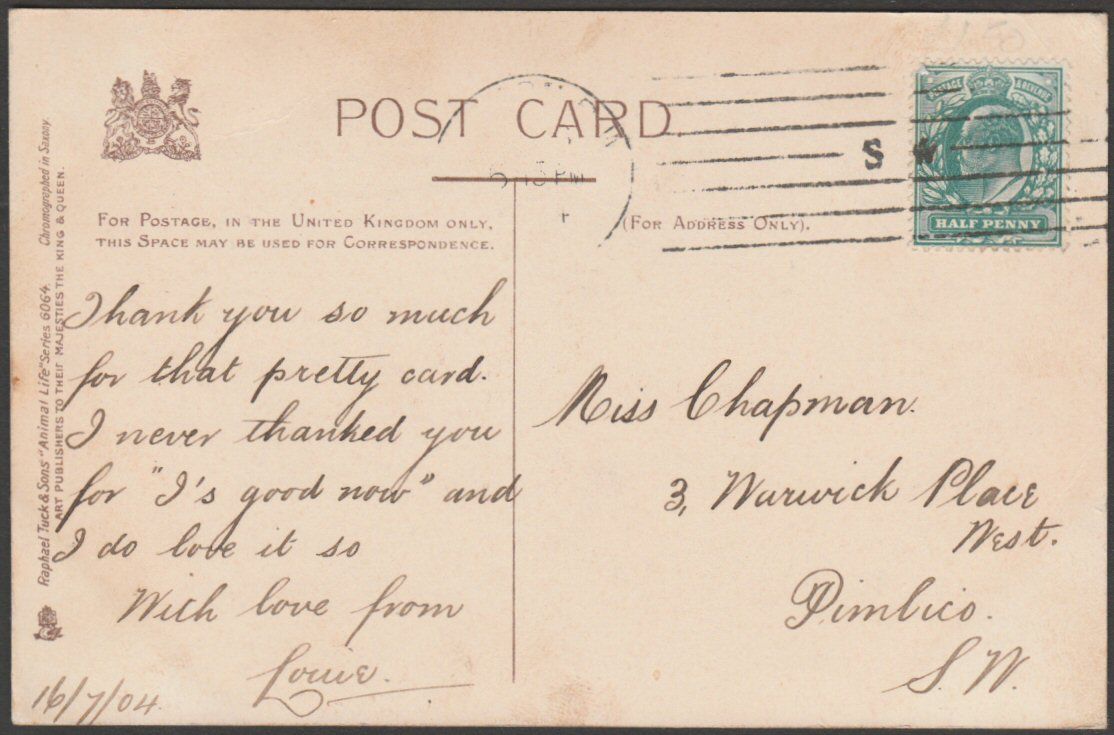 POST CARD
FOR POSTAGE, IN THE UNITED KINGDOM ONLY,
THIS SPACE MAY BE USED FOR CORRESPONDENCE.
(FOR ADDRESS ONLY).
POSTAGE & REVENUE
HALF PENNY
S W
PM
Raphael Tuck & Sons' "Animal Life" Series 6064. Chromographed in Saxony.
ART PUBLISHERS TO THEIR MAJESTIES THE KING & QUEEN.
Thank you so much
for that pretty card.
I never thanked you
for "I's good now" and
I do love it so
With love from
Louie.
16/7/04
Miss Chapman.
3, Warwick Place
West.
Pimlico.
S. W.